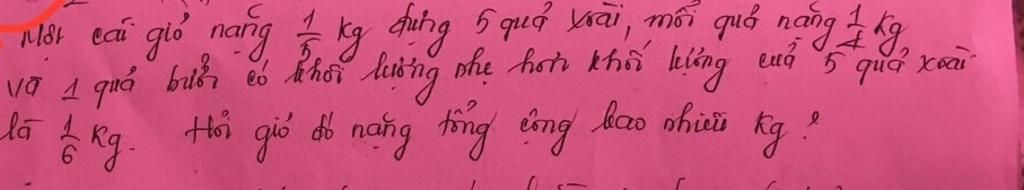 Một cái giỏ nặng 1/5 kg đựng 5 quả xoài, mỗi quả nặng 1/4 kg
và 1 quả bưởi có khối lượng nhẹ hơn khối lượng của 5 quả xoài
là 1/6 kg. Hỏi giỏ đó nặng tổng cộng bao nhiêu kg?